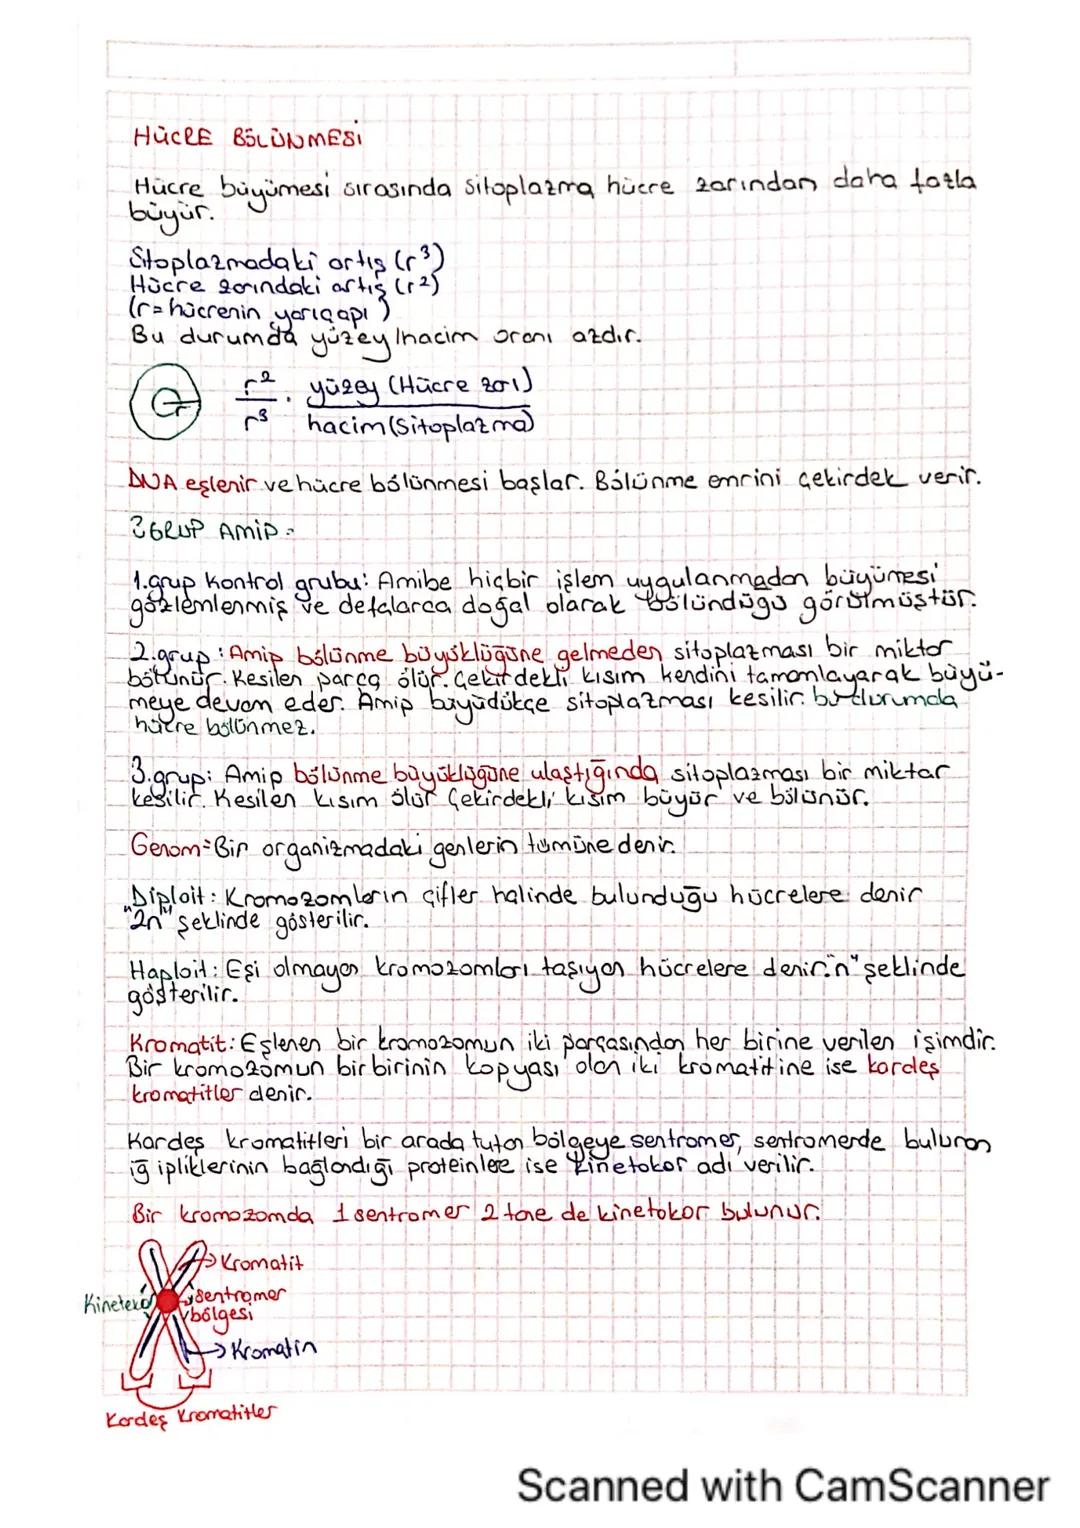 HÜCRE BÖLÜNMESİ
Hücre büyümesi sırasında sitoplazma hücre zarından daha fazla
büyür.
Sitoplazmadaki artış (r³)
Hücre zarındaki artış (r²)
(r= hücrenin yarıçapı)
Bu durumda yüzey/hacim oranı azdır.
r² . yüzey (Hücre zarı)
r³ hacim (Sitoplazma)
DNA eşlenir ve hücre bölünmesi başlar. Bölünme emrini çekirdek verir.
3 GRUP AMİP:
1.grup kontrol grubu: Amibe hiçbir işlem uygulanmadan büyümesi
gözlemlenmiş ve defalarca doğal olarak bölündüğü görülmüştür.
2.grup: Amip bölünme büyüklüğüne gelmeden sitoplazması bir miktar
bölünür. Kesilen parça ölür. Çekirdekli kısım kendini tamamlayarak büyü-
meye devam eder. Amip büyüdükçe sitoplazması kesilir. bu durumda
hücre bölünmez.
3.grup: Amip bölünme büyüklüğüne ulaştığında sitoplazması bir miktar
kesilir. Kesilen kısım ölür Çekirdekli kısım büyür ve bölünür.
Genom= Bir organizmadaki genlerin tümüne denir.
Diploit: Kromozomların çiftler halinde bulunduğu hücrelere denir
"2n" şeklinde gösterilir.
Haploit: Eşi olmayan kromozomları taşıyan hücrelere denir."n" şeklinde
gösterilir.
Kromatit: Eşlenen bir kromozomun iki parçasından her birine verilen isimdir.
Bir kromozomun birbirinin kopyası olan iki kromatitine ise kardeş
kromatitler denir.
Kardeş kromatitleri bir arada tutan bölgeye sentromer, sentromerde bulunan
iğ ipliklerinin bağlandığı proteinlere ise kinetokor adı verilir.
Bir kromozomda 1 sentromer 2 tane de kinetokor bulunur.
Kromatit
Kinetekor
sentromer
bölgesi
Kromatin
Kardeş Kromatitler
Scanned with CamScanner